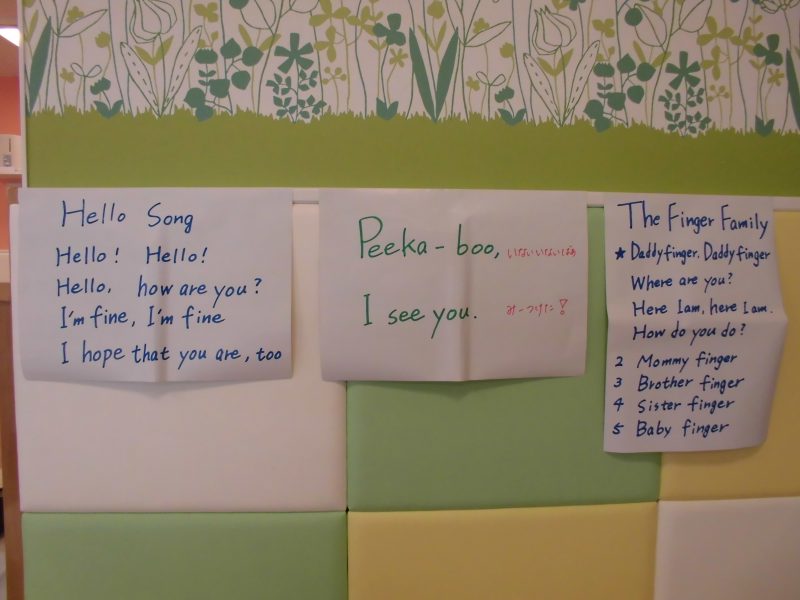 Hello Song
Hello! Hello!
Hello, how are you?
I'm fine, I'm fine
I hope that you are, too
Peeka-boo, いないいないばあ
I see you. みーつけた!
The Finger Family
★ Daddy finger, Daddy finger
Where are you?
Here I am, here I am.
How do you do?
2 Mommy finger
3 Brother finger
4 Sister finger
5 Baby finger